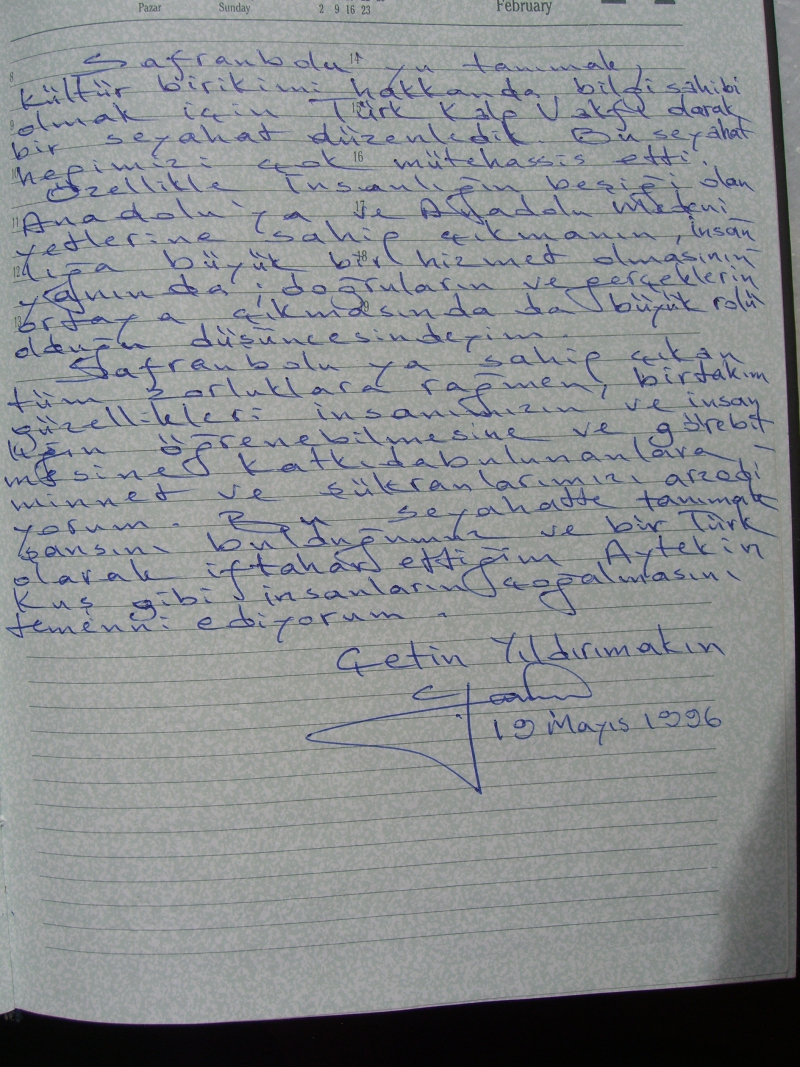 Pazar Sunday 2 9 16 23 February
Safranbolu'yu tanımak,
8
kültür birikimi hakkında bilgi sahibi
9
olmak için Türk Kalp Vakfı olarak
bir seyahat düzenledik. Bu seyahat
10 16
hepimizi çok mütehassis etti.
Özellikle İnsanlığın beşiği olan
11 17
Anadolu'ya ve Anadolu Medeni
yetlerine sahip çıkmanın, insan
12 18
lığa büyük bir hizmet olmasının
yanında, doğruların ve gerçeklerin
13 19
ortaya çıkmasında da büyük rolü
olduğu düşüncesindeyim.
Safranbolu ya sahip çıkan
tüm zorluklara rağmen, birtakım
güzellikleri insanımızın ve insan
lığın öğrenebilmesine ve görebil
mesine katkıda bulunanlara
minnet ve şükranlarımızı arzedi
yorum. Bu seyahatte tanımak
şansını bulduğumuz ve bir Türk
olarak iftahar ettiğim Aytekin
Kuş gibi insanların çoğalmasını
temenni ediyorum.
Çetin Yıldırımakın
19 Mayıs 1996